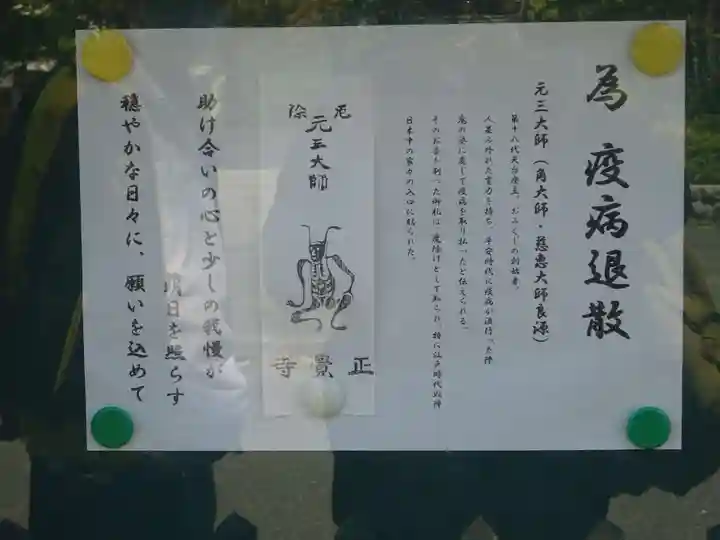 為 疫病退散
元三大師(角大師・慈恵大師良源)
第十八代天台座主、おみくじの創始者。
人並み外れた霊力を持ち、平安時代に疫病が流行った際
鬼の姿に変じて疫病を取り払ったと伝えられる。
そのお姿を刷った御札は、魔除けとして知られ、特に江戸時代以降
日本中の家々の入口に貼られた。
厄除
元三大師
正覚寺
助け合いの心と少しの我慢が
明日を照らす
穏やかな日々に、願いを込めて